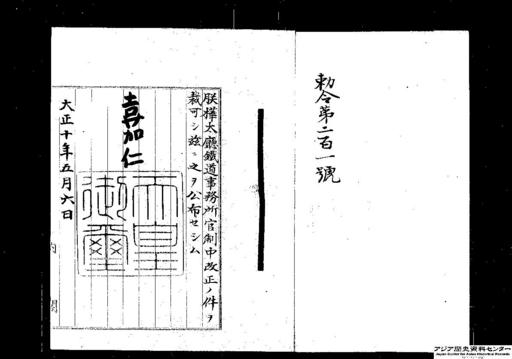 勅令第二百一號
朕樺太廳鐵道事務所官制中改正ノ件ヲ
裁可シ茲ニ之ヲ公布セシム
嘉仁
天皇
御璽
大正十年五月六日
内閣
アジア歴史資料センター
Japan Center for Asian Historical Records